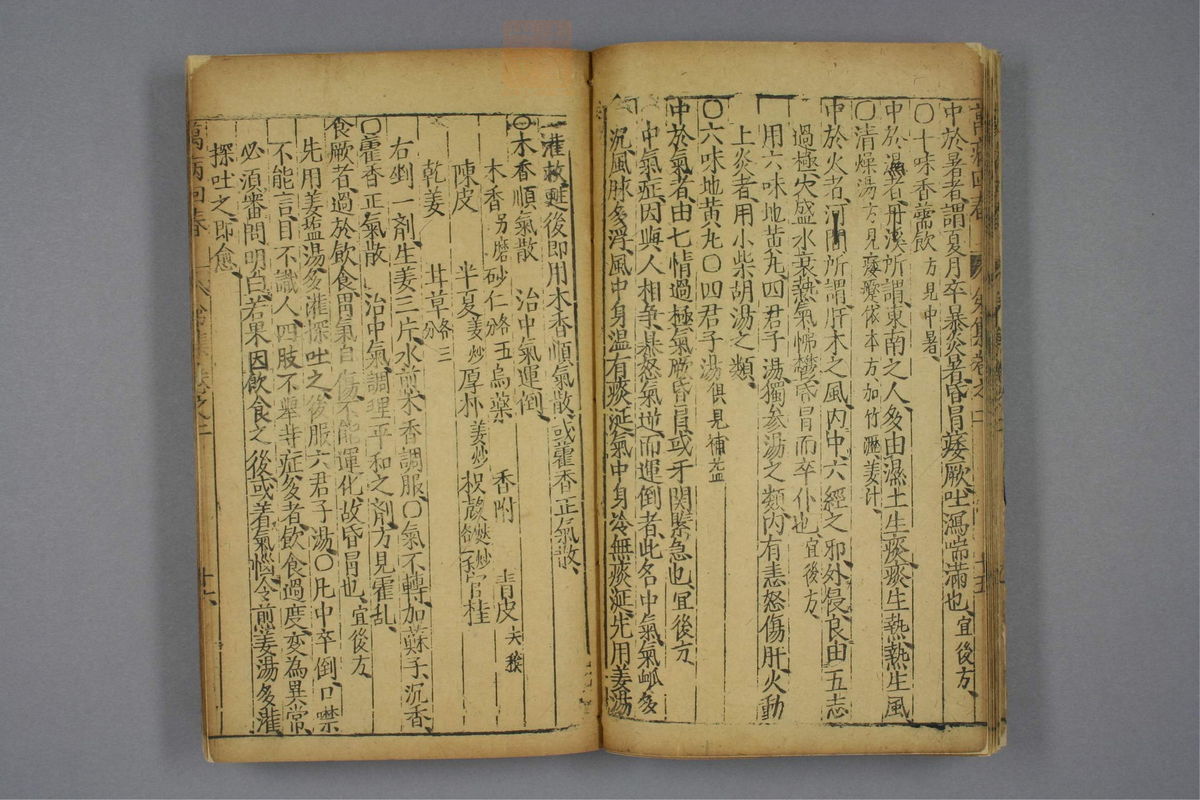 中於暑者謂夏月卒暴炎暑昏冒痿厥吐瀉喘滿也宜後方
〇十味香薷飲方見中暑
中於濕者丹溪所謂東南之人多由濕土生痰痰生熱熱生風
〇清燥湯方見痿躄依本方加竹瀝姜汁
中於火者河間所謂肝木之風內中六經之邪外侵良由五志
過極火盛水衰熱氣怫鬱昏冒而卒仆也宜後方
用六味地黃丸四君子湯獨參湯之類內有恚怒傷肝火動
上炎者用小柴胡湯之類
〇六味地黃丸〇四君子湯俱見補益
中於氣者由七情過極氣厥昏冒或牙関緊急也宜後方
中氣症因與人相争暴怒氣逆而運倒者此名中氣氣岻多
沉風脉多浮風中身溫有痰涎氣中身冷無痰涎先用姜湯
灌救甦後即用木香順氣散或藿香正氣散
〇木香順氣散 治中氣運倒
木香另磨 砂仁各五分 烏藥 香附 青皮去穰
陳皮 半夏姜炒 厚朴姜炒 枳殼麸炒各一錢 官桂
乾姜 甘草各三分
右剉一剤生姜三片水煎木香調服〇氣不轉加蘇子沉香
〇霍香正氣散 治中氣調理平和之剤方見霍乱
食厥者過於飲食胃氣自傷不能運化故昏冒也宜後方
先用姜塩湯多灌探吐之後服六君子湯〇凡中卒倒口噤
不能言目不識人四肢不舉等症多者飲食過度変為異常
必湏審問明白若果因飲食之後或着氣惱令煎姜湯多灌
探吐之即愈
萬病回春